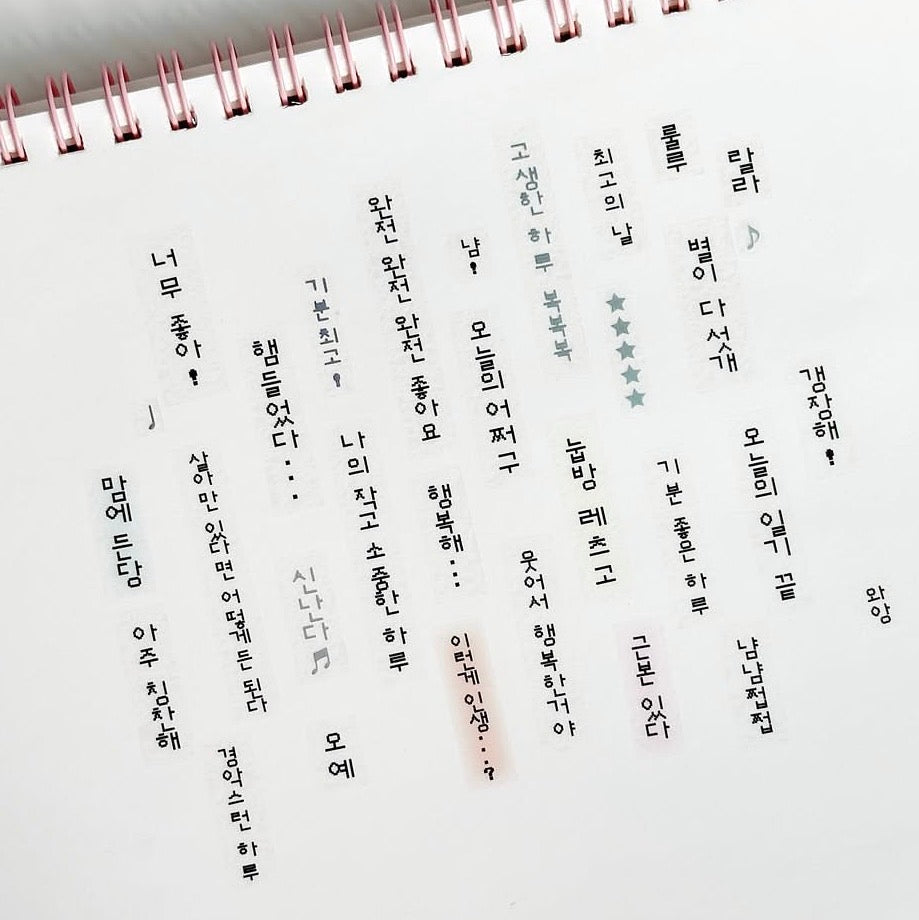 너무 좋아!
맘에 든담
아주 칭찬해
살아만 있다면 어떻게든 된다
경악스런 하루
햄들었다...
기분최고!
신난다
모예
완전 완전 완전 좋아요
나의 작고 소중한 하루
냠!
오늘의 어쩌구
행복해...
이런게 인생...?
고생한 하루 복복복
웃어서 행복한거야
최고의 날
눕방 레츠고
룰루
랄라
별이 다섯개
★★★★★
기분 좋은 하루
근본 있다
오늘의 일기 끝
냠냠쩝쩝
갬장해!
와앙